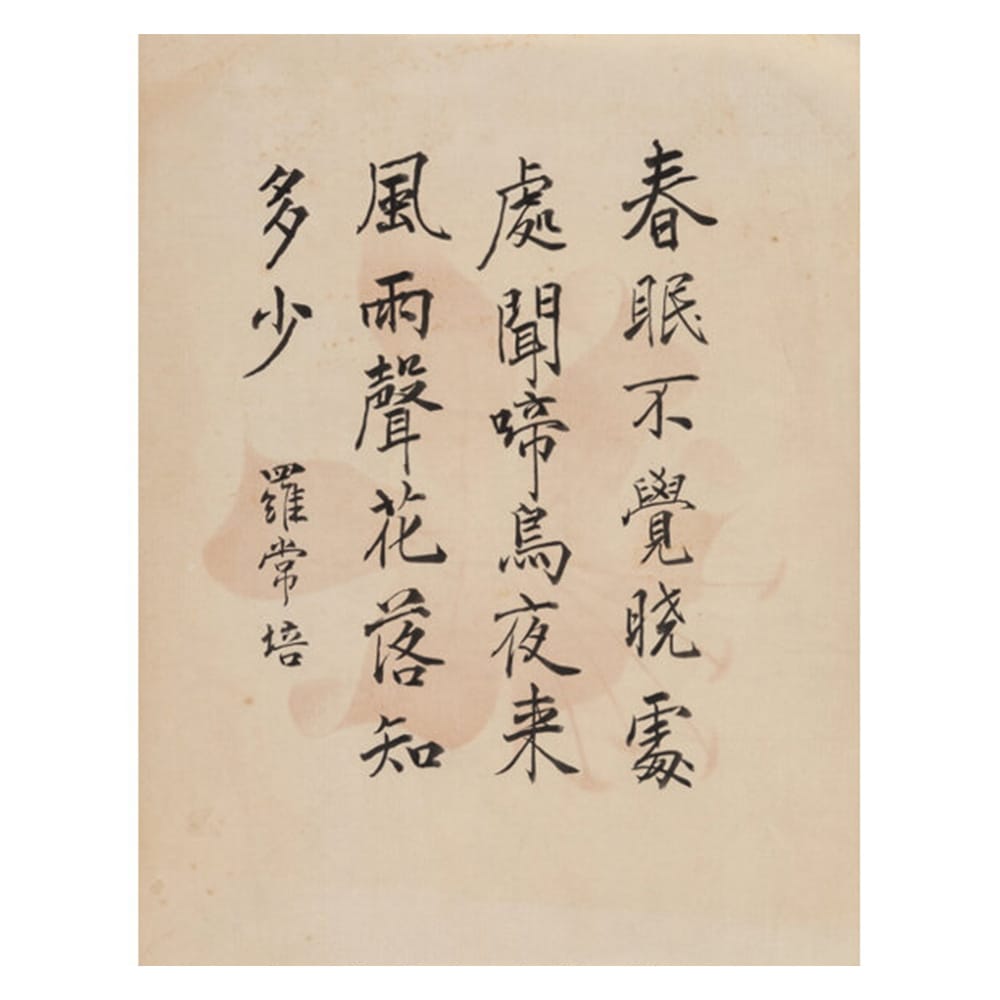 春眠不覺曉處
處聞啼鳥夜来
風雨聲花落知
多少
羅常培